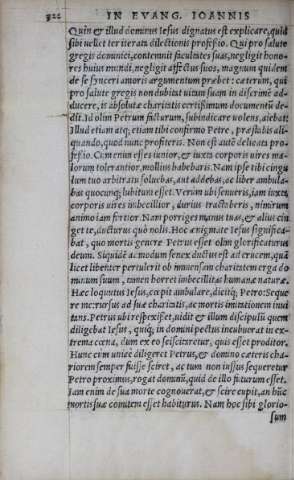 322 IN EVANG. IOANNIS
Quin & illud dominus Iesus dignatus est explicare, quid
sibi uellet ter iterata dilectionis professio. Qui pro salute
gregis dominici, contemnit facultates suas, negligit hono-
res huius mundi, negligit affectus suos, magnum quidem
de se synceri amoris argumentum præbet: cæterum, qui
pro salute gregis non dubitat uitam suam in discrimē ad-
ducere, is absolutæ charitatis certissimum documentū de-
dit. Id olim Petrum facturum, subindicare uolens, aiebat:
Illud etiam atq; etiam tibi confirmo Petre, præstabis ali-
quando, quod nunc profiteris. Non est autē delicata pro-
fessio. Cum enim esses iunior, & iuxta corporis uires ma-
lorum tolerantior, mollius habebaris. Nam ipse tibi cingu
lum tuo arbitratu soluebas, aut addebas, ac liber ambula-
bas quocunq; lubitum esset. Verùm ubi senueris, iam iuxta
corporis uires imbecillior, durius tractaberis, nimirum
animo iam fortior. Nam porriges manus tuas, & alius cin
get te, ducturus quò nolis. Hoc ænigmate Iesus significa-
bat, quo mortis genere Petrus esset olim glorificaturus
deum. Siquidē ad modum senex ductus est ad crucem, quā
licet libenter pertulerit ob immensam charitatem erga do
minum suum, tamen horret imbecillitas humanæ naturæ.
Hæc loquutus Iesus, cœpit ambulare, dicitq; Petro: Seque
re me: rursus ad suæ charitatis, ac mortis imitationem inui
tans. Petrus ubi respexisset, uidit & illum discipulū quem
diligebat Iesus, quiq; in domini pectus incubuerat in ex-
trema cœna, dum ex eo sciscitaretur, quis esset proditor.
Hunc cùm unicè diligeret Petrus, & domino cæteris cha-
riorem semper fuisse sciret, ac tum non iussus sequeretur
Petro proximus, rogat dominū, quid de illo futurum esset.
Iam enim de sua morte cognouerat, & scire cupit, an hūc
mortis suæ comitem esset habiturus. Nam hoc sibi glorio-
sum